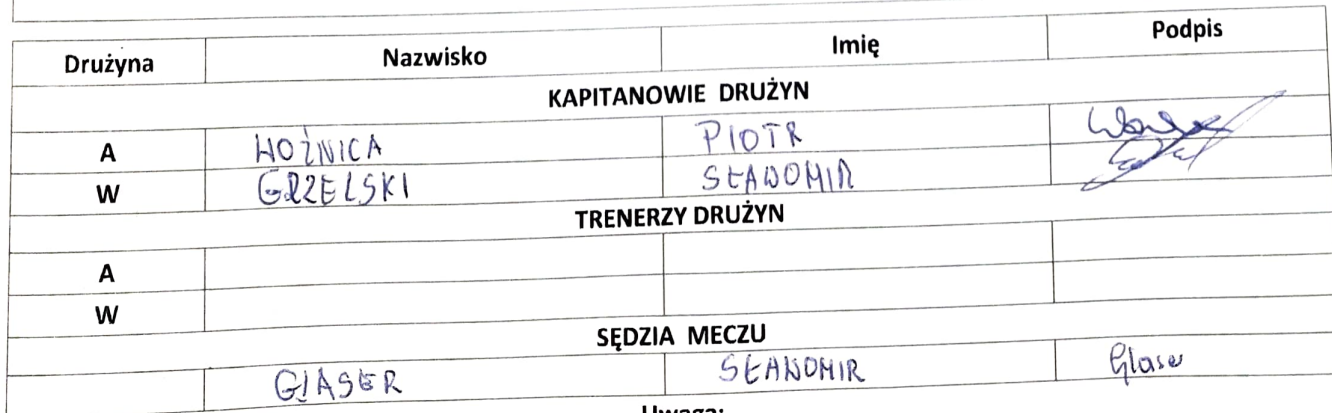 Drużyna Nazwisko Imię Podpis
KAPITANOWIE DRUŻYN
A WOŹNICA PIOTR
W GRZELSKI SŁAWOMIR
TRENERZY DRUŻYN
A
W
SĘDZIA MECZU
GLASER SŁAWOMIR Glaser
Uwaga: